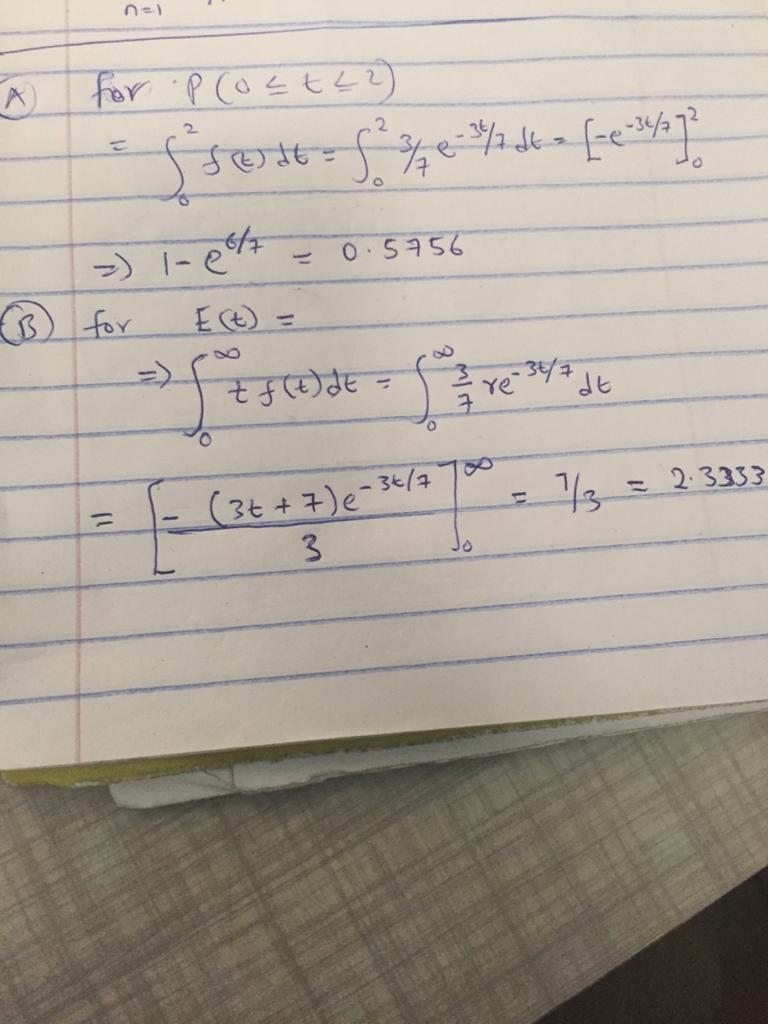 n=1
(A) for P(0 ≤ t ≤ 2)
= ∫₀² f(t) dt = ∫₀² 3/7 e^(-3t/7) dt = [-e^(-3t/7)]₀²
=) 1 - e^(6/7) = 0.5756
(B) for E(t) =
=) ∫₀^∞ t f(t) dt = ∫₀^∞ 3/7 re^(-3t/7) dt
= [-(3t+7)e^(-3t/7) / 3]₀^∞ = 7/3 = 2.3333